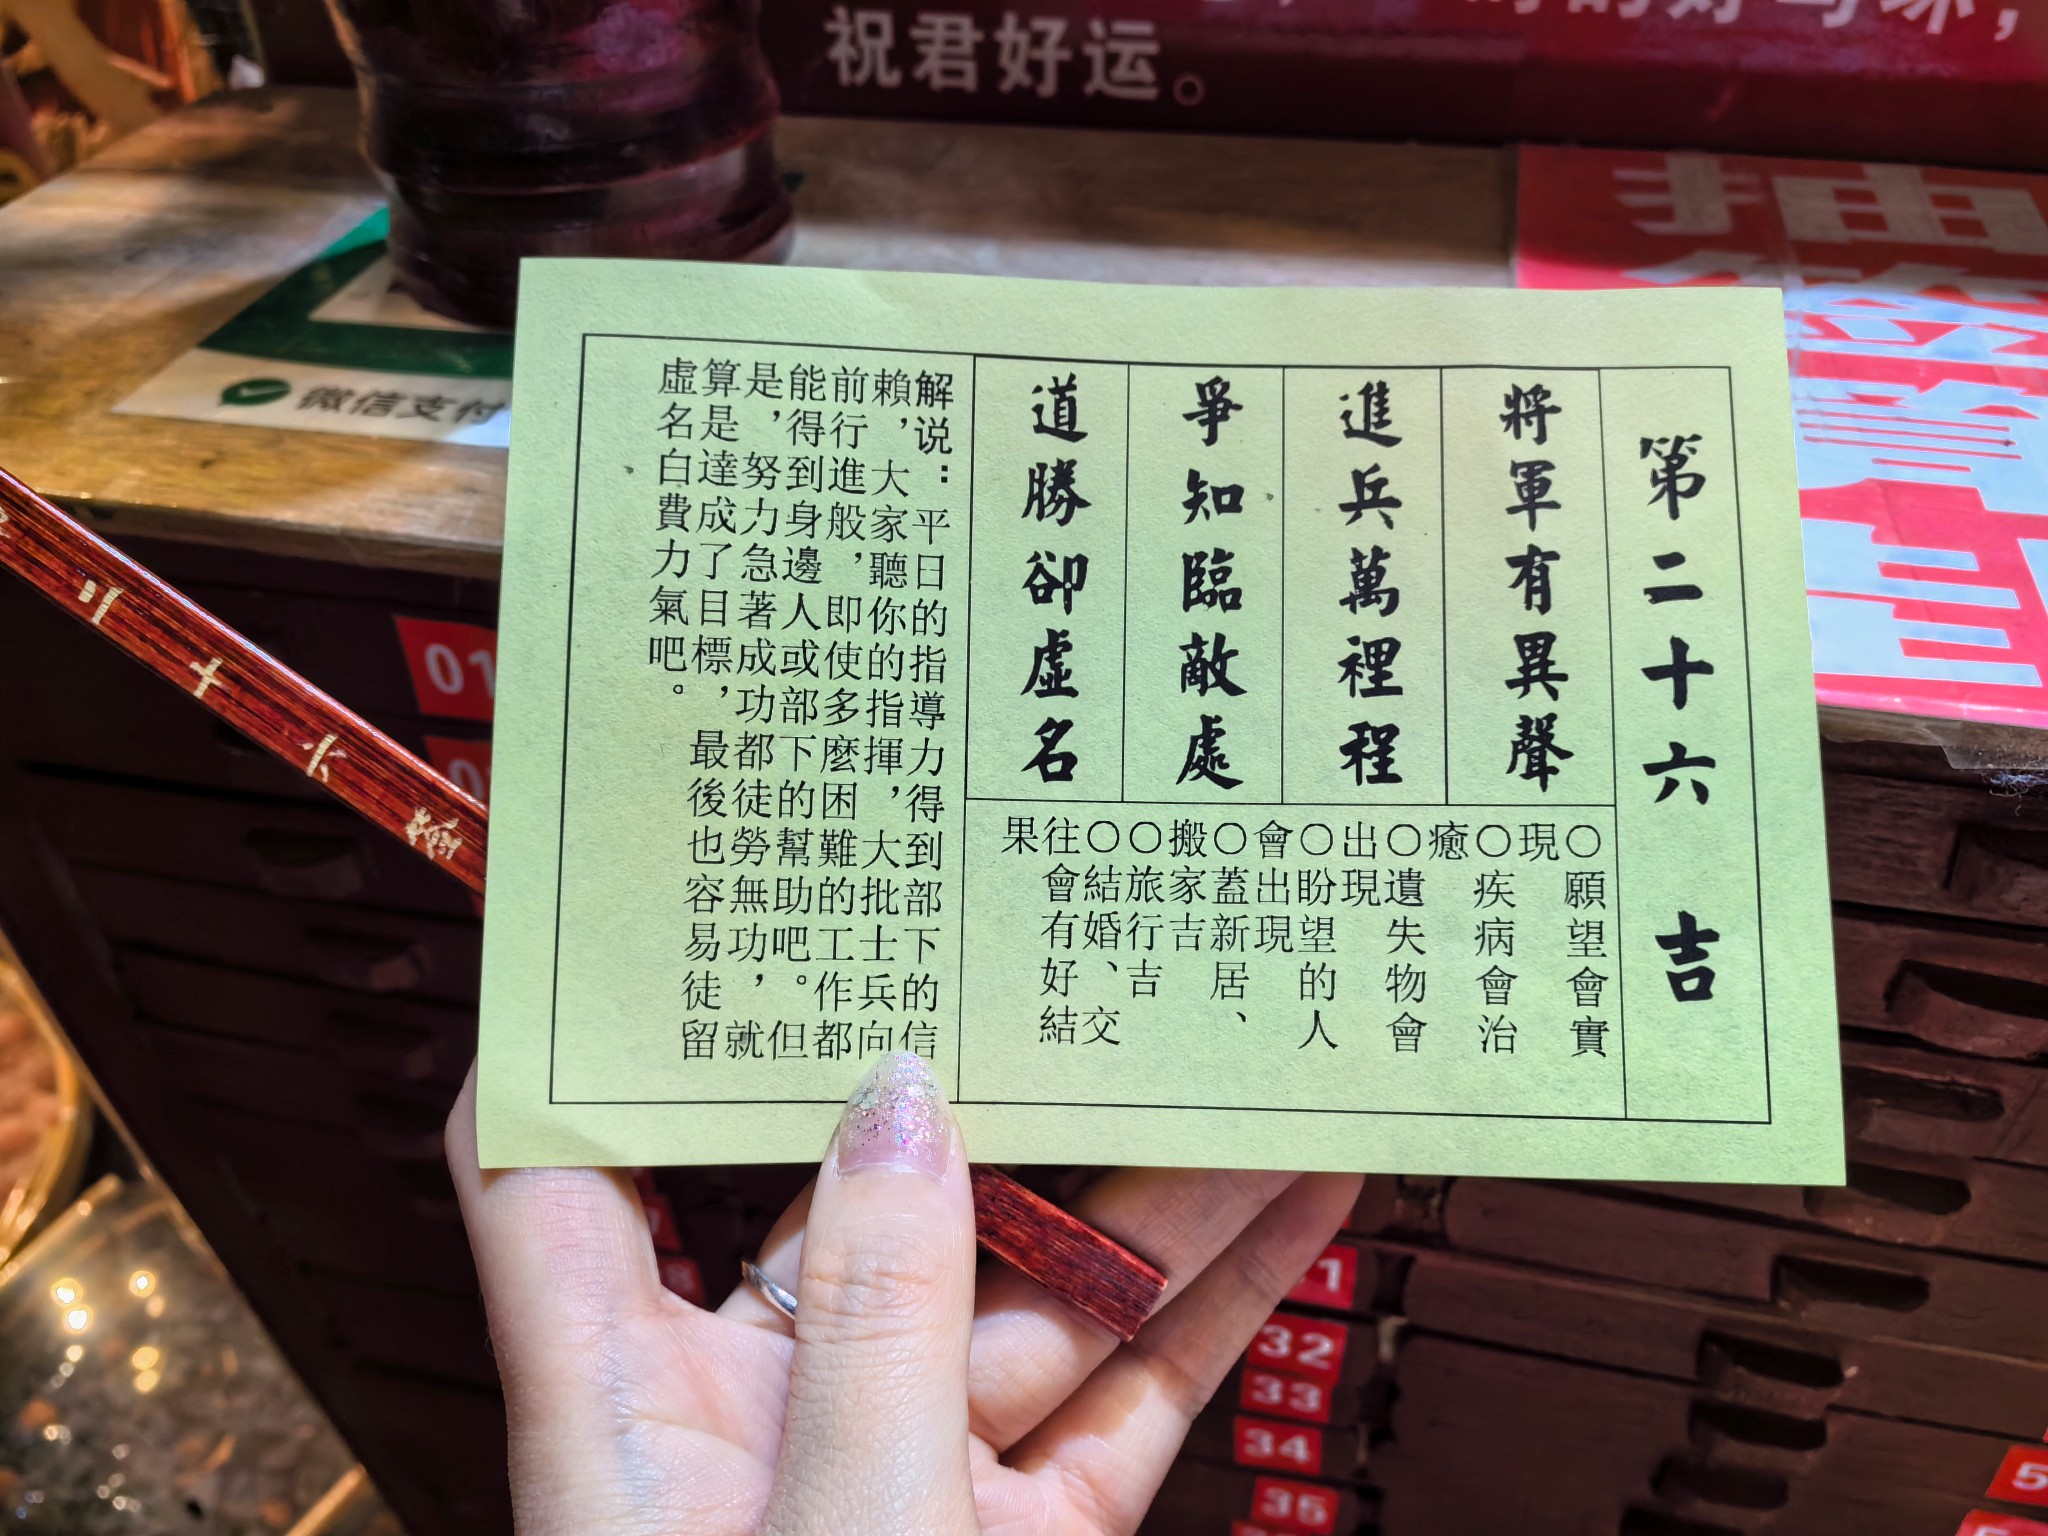 祝君好运。
微信支付
抽
签
第二十六 吉
將軍有異聲
進兵萬裡程
爭知臨敵處
道勝卻虛名
○願望會實
現
○疾病會治
癒
○遺失物會
出現
○盼望的人
會出現
○蓋新居、
搬家吉
○旅行吉
○結婚、交
往會有好結
果
解说：平日的指導力得到部下的信
賴，大家聽你的指揮，大批士兵向
前行進般，即使多麼困難的工作都
能得到身邊人或部下的幫助吧。但
是，努力急著成功都徒勞無功，就
算是達成了目標，最後也容易徒留
虛名白費力氣吧。
二十六
01
32
33
34
35